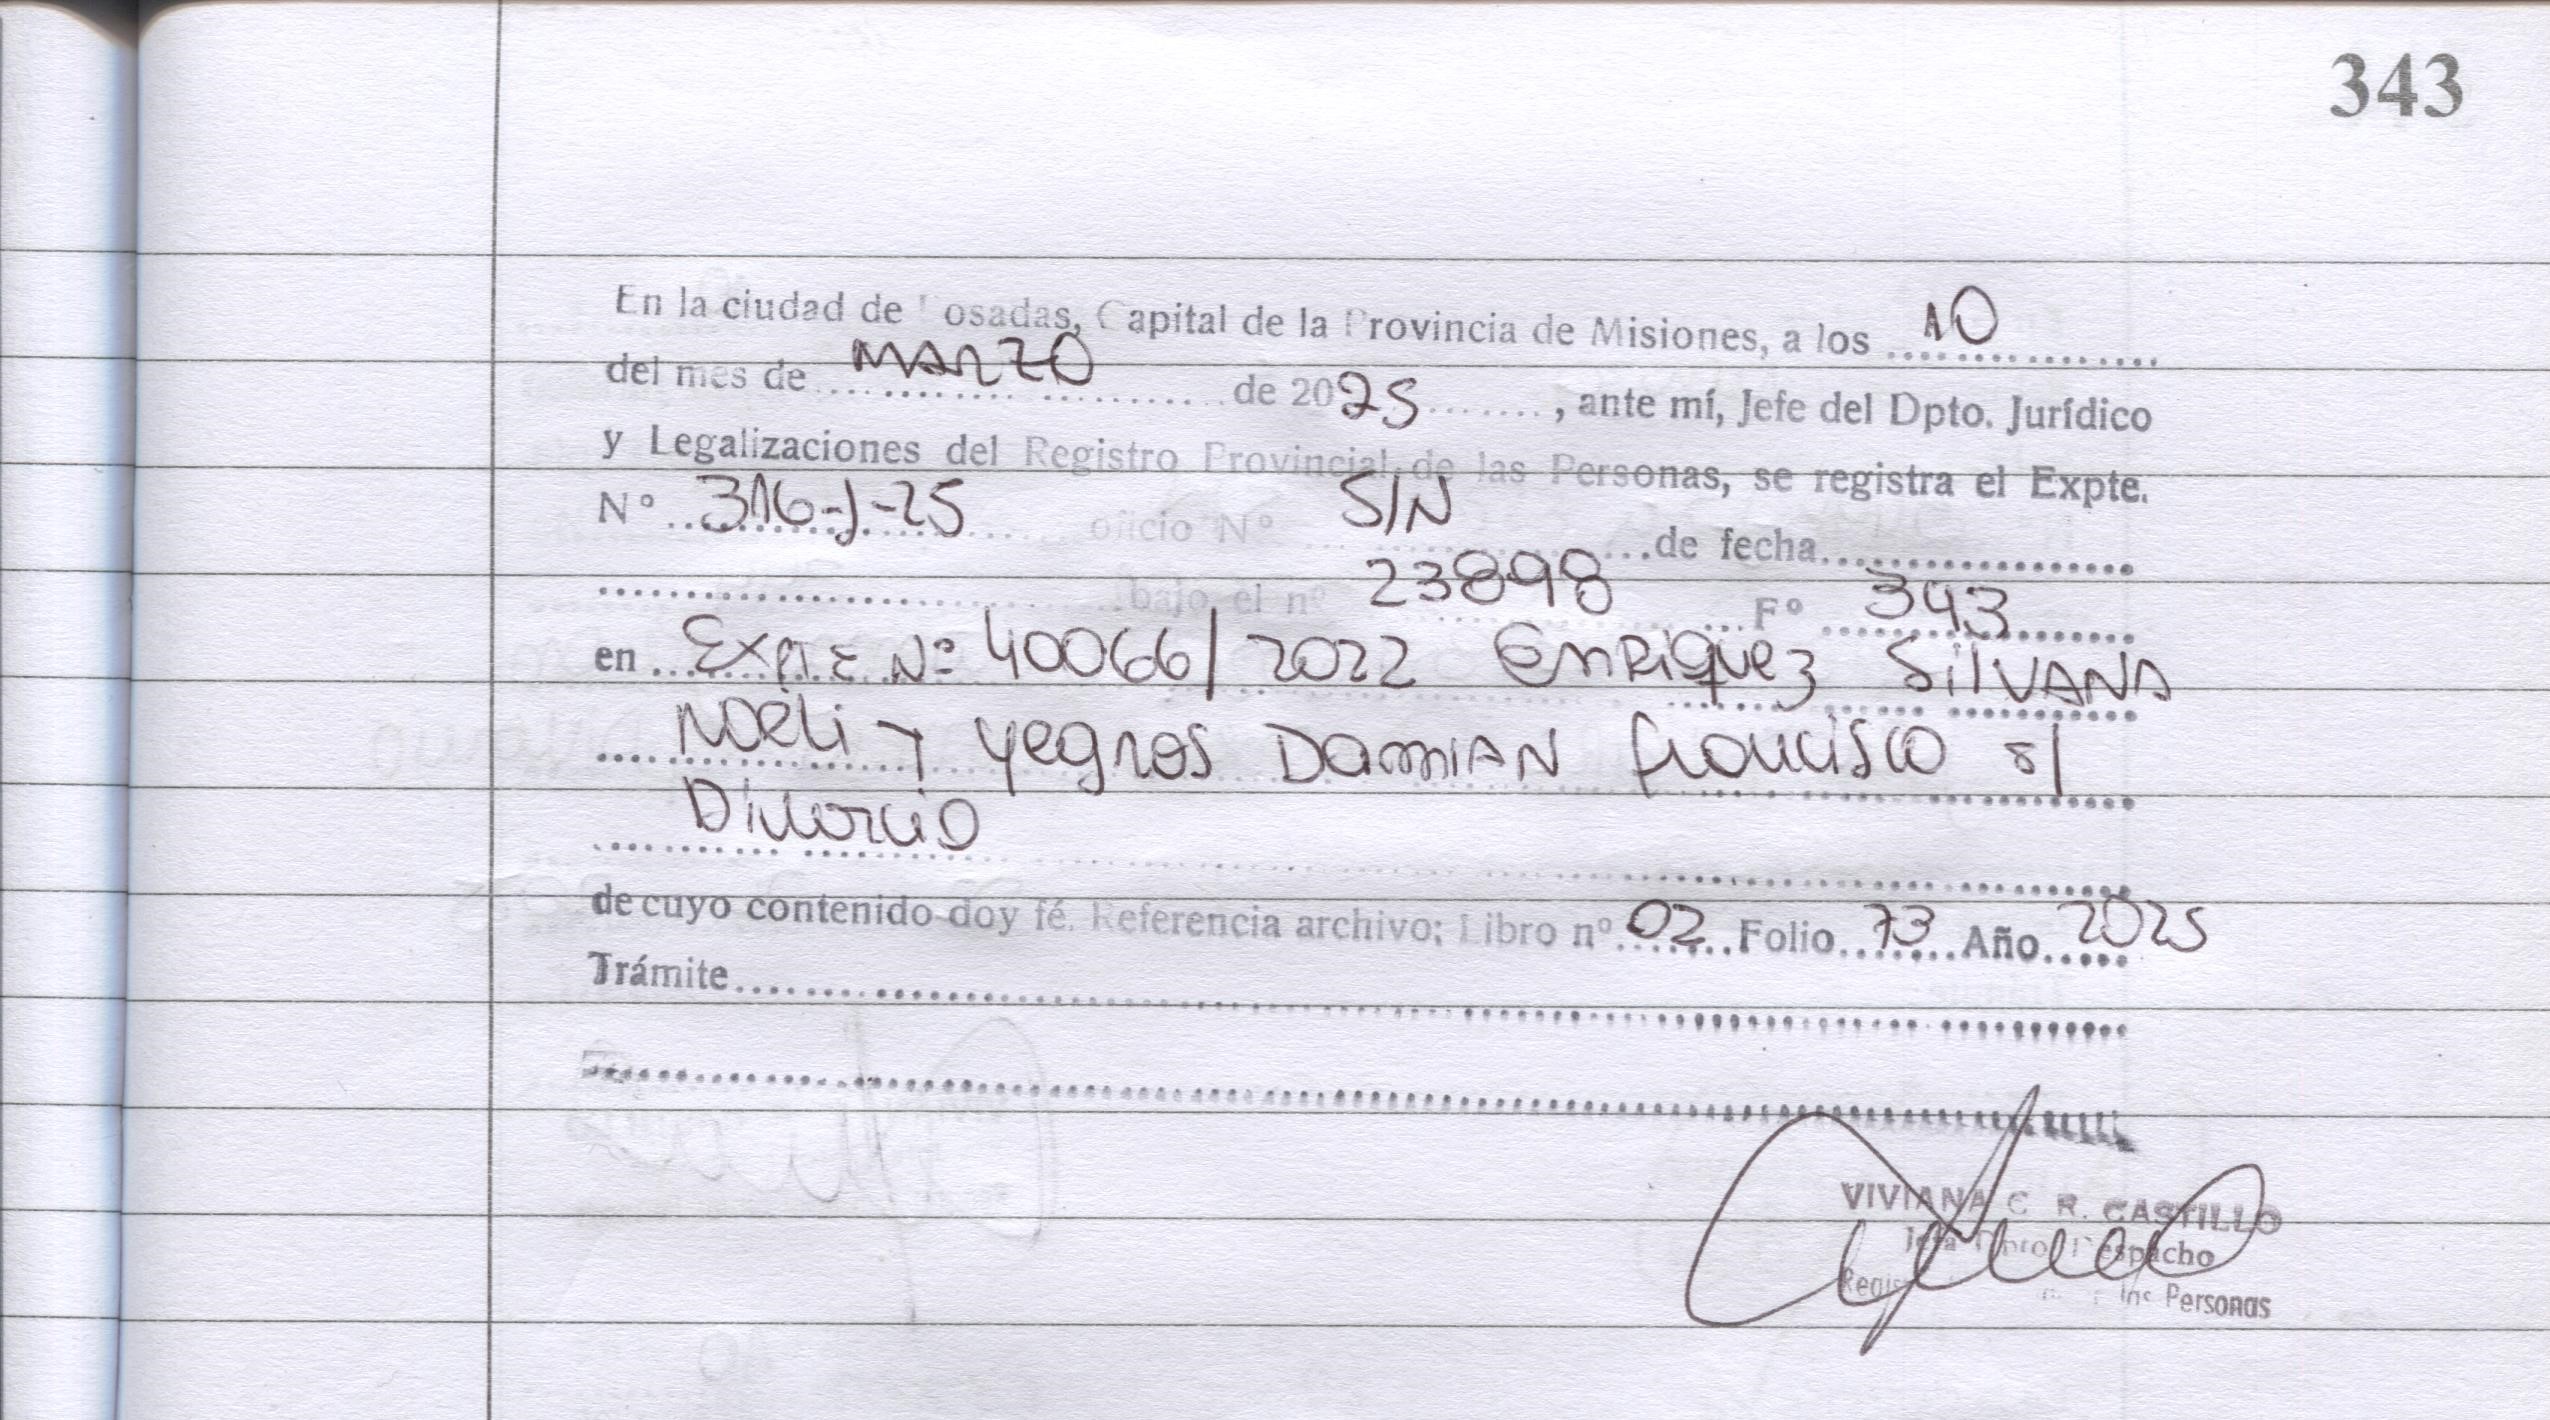 343
En la ciudad de Posadas, Capital de la Provincia de Misiones, a los 10
del mes de MARZO de 2025, ante mí, Jefe del Dpto. Jurídico
y Legalizaciones del Registro Provincial de las Personas, se registra el Expte.
N° 316-J-25 oficio N° S/N de fecha
bajo el n° 23898 F° 343
en Expte Nº 40066/2022 Enriquez Silvana
Noeli y Yegros Damian Francisco s/
Divorcio
de cuyo contenido doy fé. Referencia archivo; Libro n° 02 Folio 73 Año 2025
Trámite
VIVIANA C R. CASTILLO
Jefa Dpto. Despacho
Personas